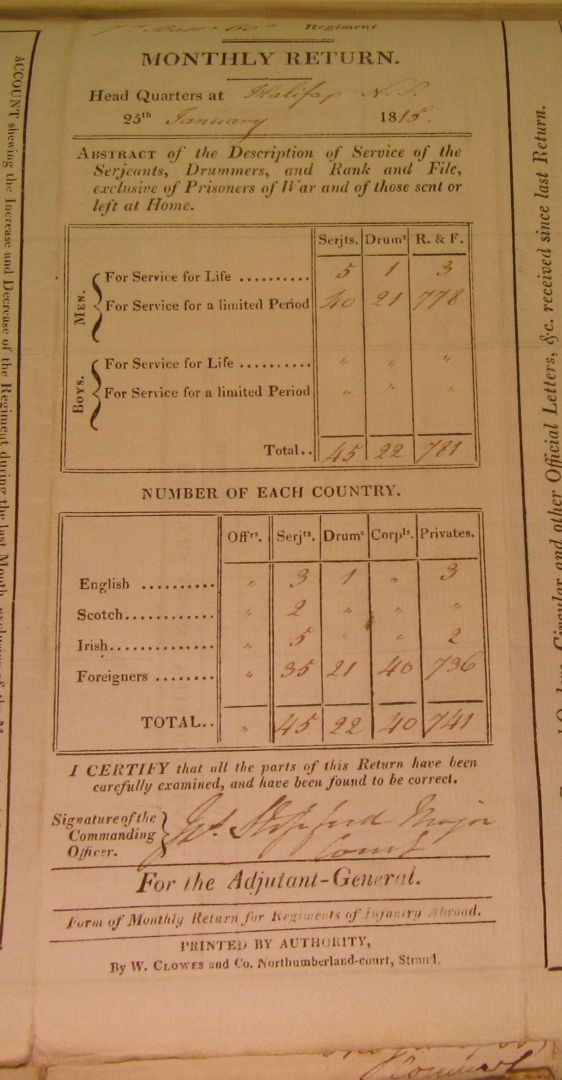 Regiment
MONTHLY RETURN.
Head Quarters at Halifax N.S.
25th January 1815.
ABSTRACT of the Description of Service of the
Serjeants, Drummers, and Rank and File,
exclusive of Prisoners of War and of those sent or
left at Home.
Serjts. Drums R. & F.
MEN.
For Service for Life .......... 5 1 3
For Service for a limited Period 40 21 778
BOYS.
For Service for Life .......... " " "
For Service for a limited Period " " "
Total.. 45 22 781
NUMBER OF EACH COUNTRY.
Offrs. Serjts. Drums Corpls. Privates.
English .......... " 3 1 " 3
Scotch............ " 2 " " "
Irish.............. " 5 " " 2
Foreigners ........ " 35 21 40 736
TOTAL.. " 45 22 40 741
I CERTIFY that all the parts of this Return have been
carefully examined, and have been found to be correct.
Signature of the
Commanding
Officer.
Major
For the Adjutant-General.
Form of Monthly Return for Regiments of Infantry Abroad.
PRINTED BY AUTHORITY,
By W. CLOWES and Co. Northumberland-court, Strand.
ACCOUNT shewing the Increase and Decrease of the Regiment during the last Month, exclusive of the
Circular and other Official Letters, &c. received since last Return.